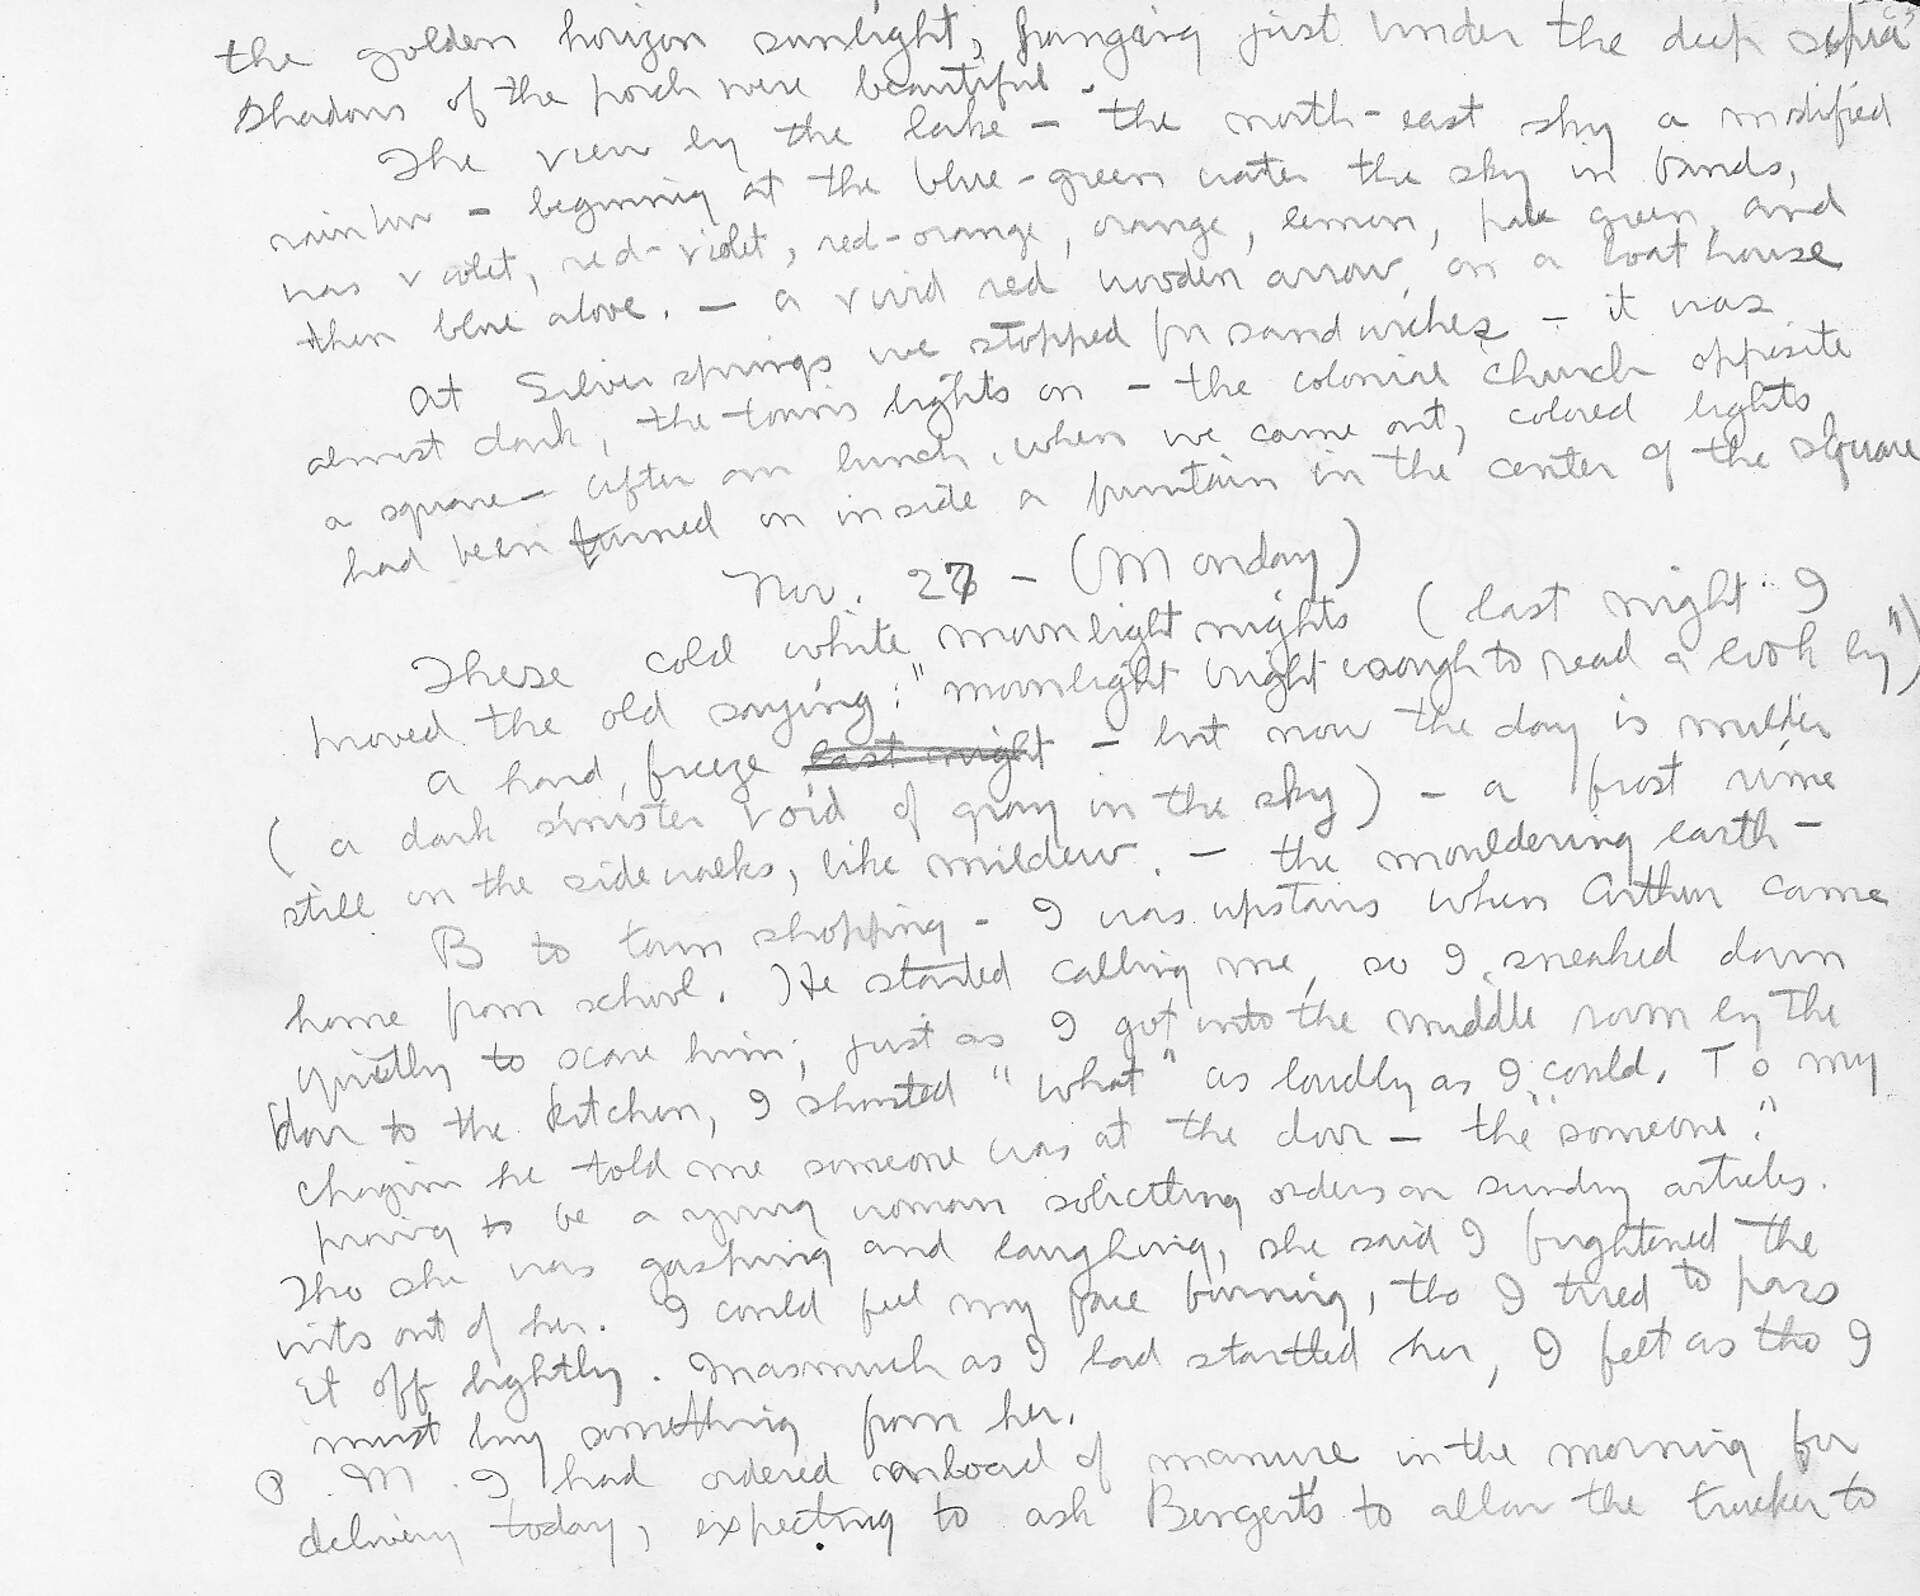 the golden horizon sunlight, hanging just under the deep sepia
shadows of the porch were beautiful.
The view by the lake – the north-east sky a modified
rainbow – beginning at the blue-green water the sky in bands,
was violet, red-violet, red-orange, orange, lemon, pale green, and
then blue above. – a vivid red wooden arrow, on a boat house
At Silver springs we stopped for sandwiches – it was
almost dark, the towns lights on – the colonial church opposite
a square – after our lunch, when we came out, colored lights
had been turned on inside a fountain in the center of the square
Nov. 27 – (Monday)
These cold white moonlight nights (last night I
proved the old saying: "moonlight bright enough to read a book by")
A hard, freeze last night – but now the day is milder
(a dark sinister void of gray in the sky) – a frost rime
still on the sidewalks, like mildew. – the mouldering earth –
B to town shopping – I was upstairs when Arthur came
home from school. He started calling me, so I sneaked down
quietly to scare him; just as I got into the middle room by the
door to the kitchen, I shouted "what" as loudly as I could. To my
chagrin he told me someone was at the door – the "someone"
proving to be a young woman soliciting orders on sundry articles.
Tho she was gasping and laughing, she said I frightened the
wits out of her. I could feel my face burning, tho I tried to pass
it off lightly. Inasmuch as I had startled her, I felt as tho I
must buy something from her.
P.M. I had ordered load of manure in the morning for
delivery today, expecting to ask Bergerts to allow the trucker to